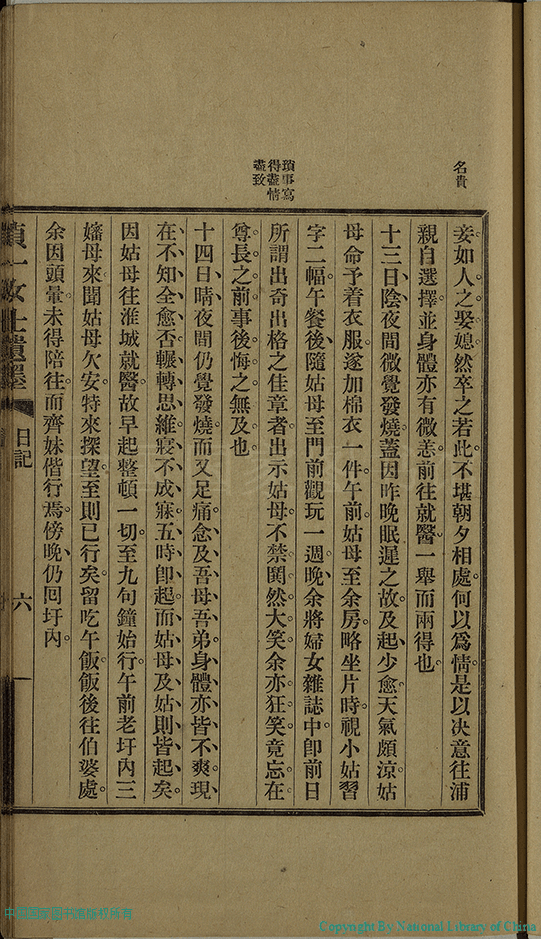 名貴
瑣事寫
得盡情
盡致
妾如人之娶媳然卒之若此不堪朝夕相處何以爲情是以決意往浦
親自選擇並身體亦有微恙前往就醫一舉而兩得也
十三日陰夜間微覺發燒蓋因昨晚眠遲之故及起少愈天氣頗涼姑
母命予着衣服遂加棉衣一件午前姑母至余房略坐片時視小姑習
字二幅午餐後隨姑母至門前觀玩一週晚余將婦女雜誌中卽前日
所謂出奇出格之佳章者出示姑母不禁鬨然大笑余亦狂笑竟忘在
尊長之前事後悔之無及也
十四日晴夜間仍覺發燒而又足痛念及吾母吾弟身體亦皆不爽現
在不知全愈否輾轉思維寢不成寐五時卽起而姑母及姑則皆起矣
因姑母往淮城就醫故早起整頓一切至九句鐘始行午前老圩內三
嬸母來聞姑母欠安特來探望至則已行矣留吃午飯飯後往伯婆處
余因頭暈未得陪往而齊妹偕行焉傍晚仍回圩內
女士遺墨
日記
六
Copyright By National Library of China